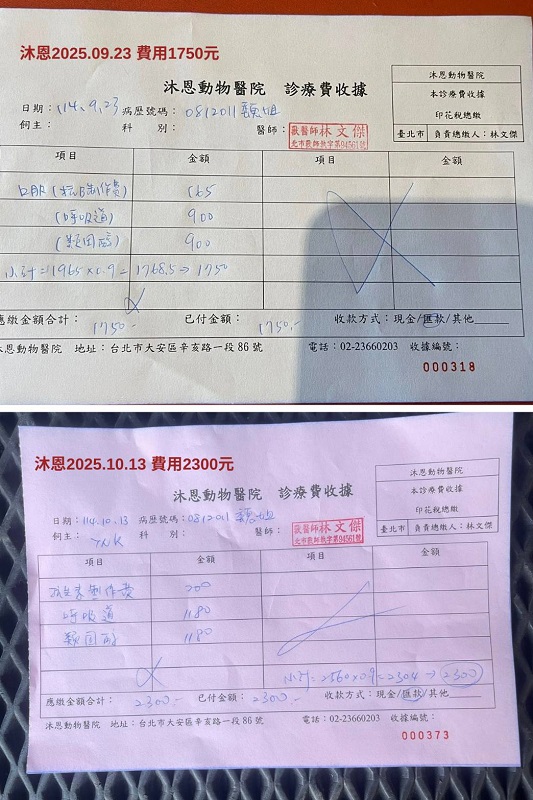 沐恩2025.09.23 費用1750元
沐恩動物醫院 診療費收據
沐恩動物醫院
本診療費收據
印花稅總繳
臺北市 負責總繳人：林文傑
日期：114.9.23 病歷號碼：0812011 顏姐
飼主： 科 別： 醫師： 獸醫師林文傑 北市獸師執字第94561號
項目 金額 項目 金額
口服(製作費) 165
(呼吸道) 900
(類固醇) 900
小計=1965×0.9=1768.5→1750
應繳金額合計：1750.- 已付金額：1750.- 收款方式：現金/匯款/其他
沐恩動物醫院 地址：台北市大安區辛亥路一段86號 電話：02-23660203 收據編號：
000318
沐恩2025.10.13 費用2300元
沐恩動物醫院 診療費收據
沐恩動物醫院
本診療費收據
印花稅總繳
臺北市 負責總繳人：林文傑
日期：114.10.13 病歷號碼：0812011 顏姐
飼主： 科 別： 醫師： 獸醫師林文傑 北市獸師執字第94561號
項目 金額 項目 金額
製作費 200
呼吸道 1180
類固醇 1180
小計=2560×0.9=2304→2300
應繳金額合計：2300.- 已付金額：2300.- 收款方式：現金/匯款/其他
沐恩動物醫院 地址：台北市大安區辛亥路一段86號 電話：02-23660203 收據編號：
000373